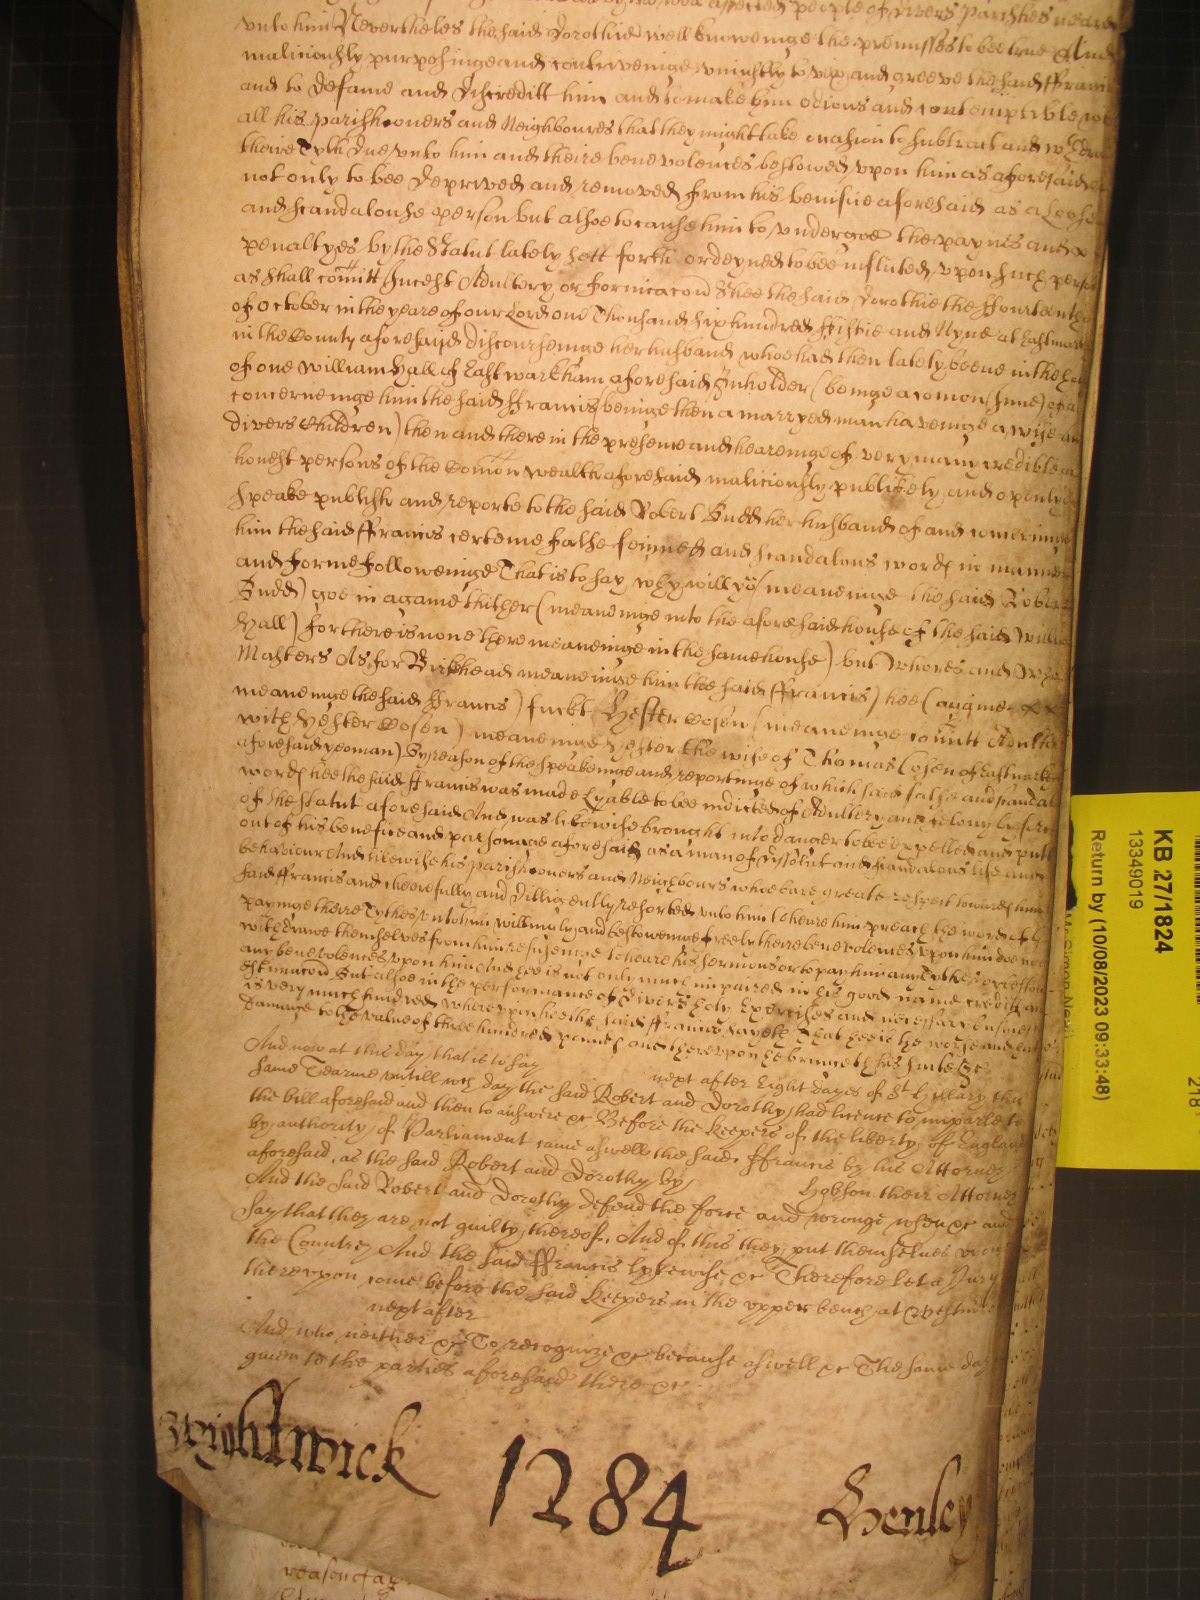 people of divers parishes neare
unto him Nevertheles the said Dorothie well knoweinge the premisses to bee true And
maliciously purposinge and contriveinge uniustly to vex and greeve the said ffrancis
and to defame and discreditt him and to make him odious and contemptible
all his parishioners and Neighboures that they might take ocasion to substract and
theire Tyth due unto him and theire benevolences bestowed upon him as aforesaid
not only to bee deprived and removed from his benifice aforesaid as a Loose
and scandalouse person but alsoe to cause him to undergoe the paynes and
penaltyes by the Statut lately sett forth ordeyned to bee inflicted upon such
as shall comitt Incest Adultery or fornicacon Shee the said Dorothie the ffourteenth
of October in the yeare of our Lord one Thousand six hundred ffiftie and Nyne at East
in the County aforesaid discourseinge her husband whoe had then lately beene in the
of one William Hall of East warkham aforesaid Inholder (beinge a comon Inne) of
concerneinge him the said ffrancis (beinge then a marryed man haveinge a wife
divers Children) then and there in the presence and heareinge of very many credible
honest persons of the Comon wealth aforesaid maliciously publickely and openly
speake publish and reporte to the said Robert Budd her husband of and concerninge
him the said ffrancis certeine false feigned and scandalous words in manner
and forme followeinge That is to say why will yo (meaneinge the said Robert
Budd) goe in againe thither (meaneinge into the aforesaid house of the said
Hall) for there is none there meaneinge in the same house) but whores and
Masters As for Birkhead meaneinge him the said ffrancis) hee (againe
meaneinge the said ffrancis) fuckt Hester Cosen (meaneinge comitt
with Hester Cosen) meaneinge Hester the wife of Thomas Cosen of East
aforesaid yeoman) By reason of the speakeinge and reportinge of which said false and
words hee the said ffrancis was made Lyable to bee indicted of Adultery and felony by
of the Statut aforesaid And was likewise brought into danger to bee expelled and putt
out of his benefice and parsonage aforesaid as a man of dissolut and scandalous life and
behaviour And likewise his parishionors and Neighbours whoe bare greate respect towards him
said ffrancis and cheerefully and dilligently resorted unto him to heare him preach the word of
payinge theire Tythes unto him willingly and bestoweinge freely theire benevolences upon him doe
withdrawe themselves from him refuseinge to heare his sermons or to pay him any Tythes
any benevolences upon him And hee is not only much impaired in his good name credit and
Estimacon But alsoe in the performance of divers holy Exercises and necessary
is very much hindred whereupon hee the said ffrancis sayeth That hee is the worse and
damage to the value of three hundred pounds and thereupon he bringeth his suite &c
And now at this day that is to say next after Eight dayes of St Hillary this
same Tearme untill wch day the said Robert and Dorothy had licence to imparle to
the bill aforesaid and then to answere &c Before the Keepers of the liberty of England
by authority of Parliament came aswell the said ffrancis by his Attorney
aforesaid, as the said Robert and Dorothy by Hobson their Attorney
And the said Robert and Dorothy defend the force and wronge when &c and
Say that they are not guilty thereof. And of this they put themselves upon
the Countrey And the said ffrancis lykewise &c Therefore let a Jury
thereupon come before the said Keepers in the upper bench at
next after
And who neither &c To recognize &c because aswell &c The same day
given to the parties aforesaid there &c
Wightwick 1284 Henley
reason of
KB 27/1824
13349019
Return by (10/08/2023 09:33:48)